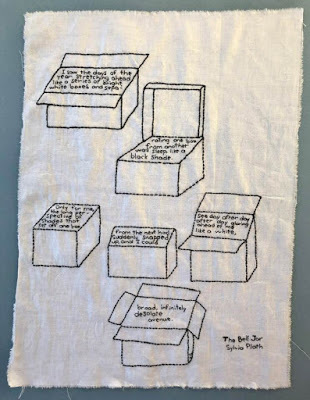 I saw the days of the
year stretching ahead
like a series of bright
white boxes and sepa-
rating one box
from another
was sleep, like a
black shade
Only for me,
the long per-
spective of
shades that
set off one box
from the next had
suddenly snapped
up, and I could
see day after day
after day glaring
ahead of me
like a white,
broad, infinitely
desolate
avenue.
The Bell Jar
Sylvia Plath